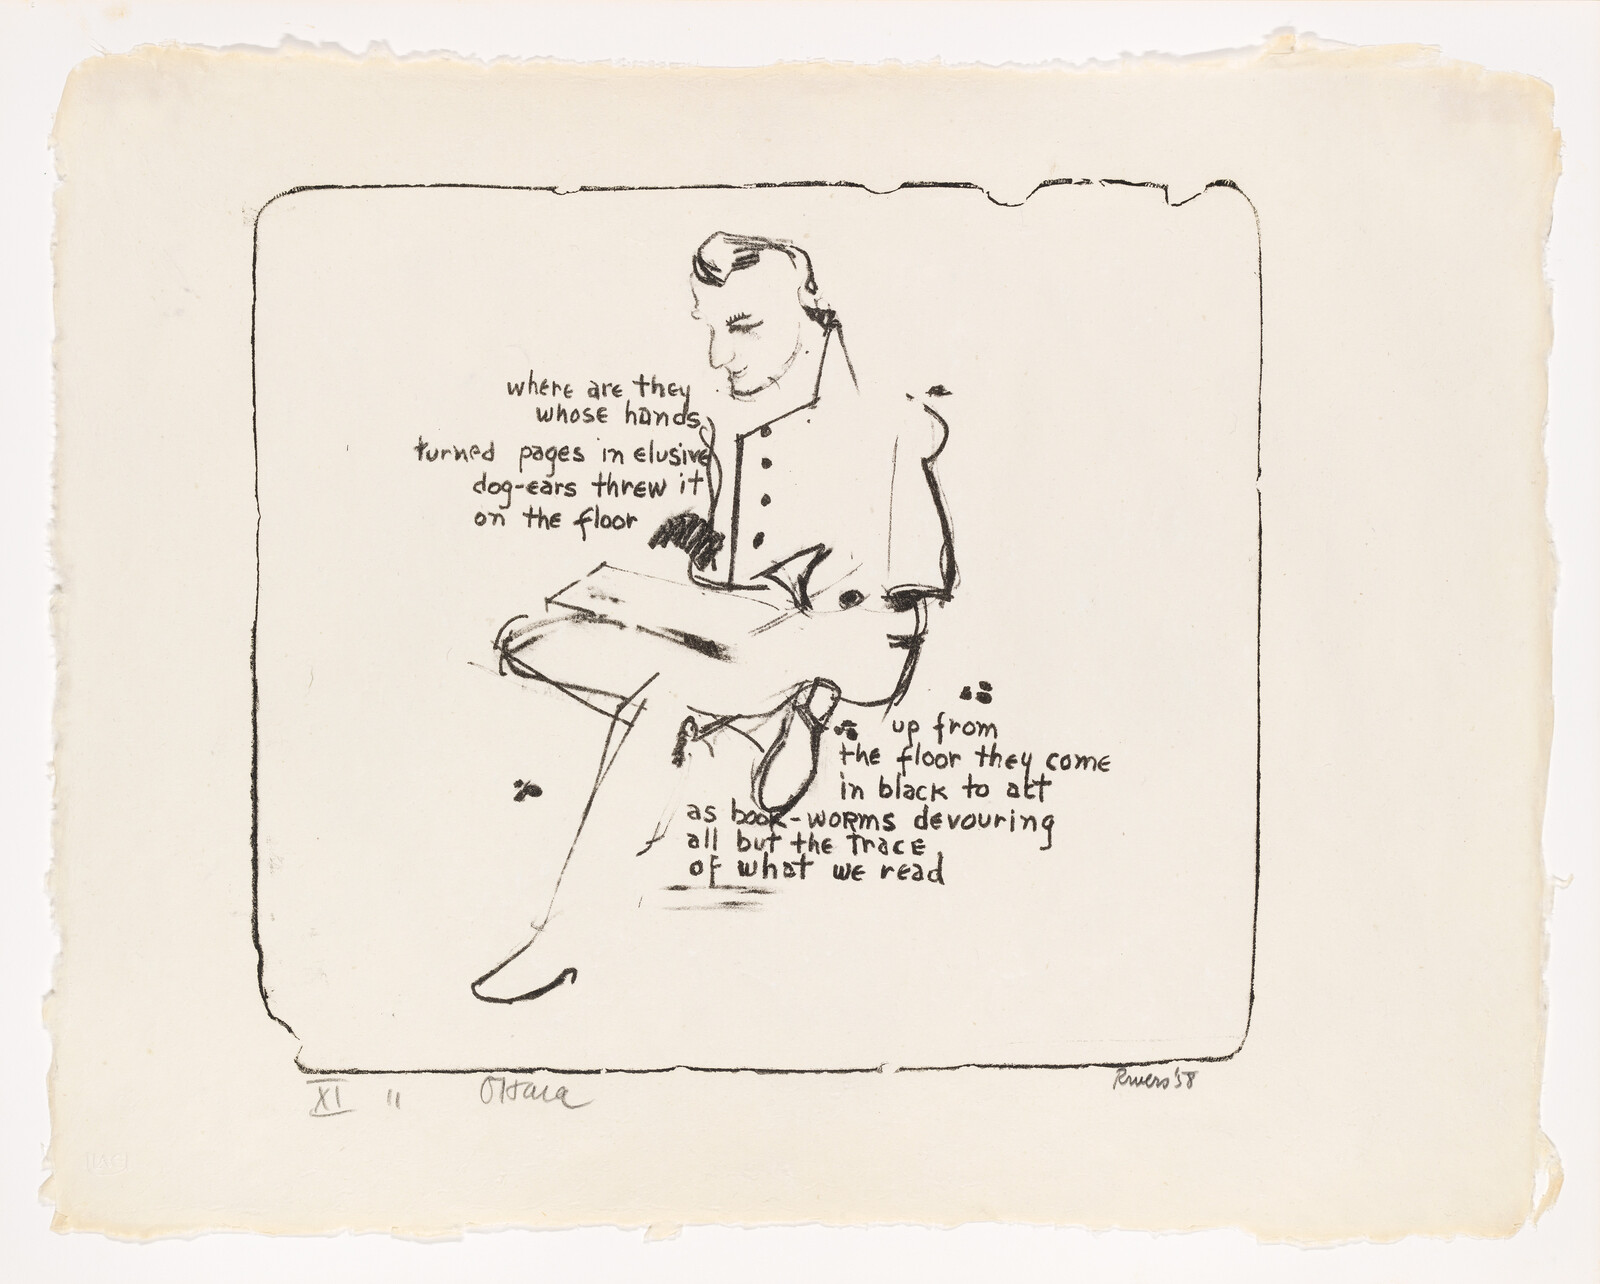 where are they
whose hands
turned pages in elusive
dog-ears threw it
on the floor
up from
the floor they come
in black to act
as book-worms devouring
all but the trace
of what we read
XI 11 O'Hara
Rivers '58